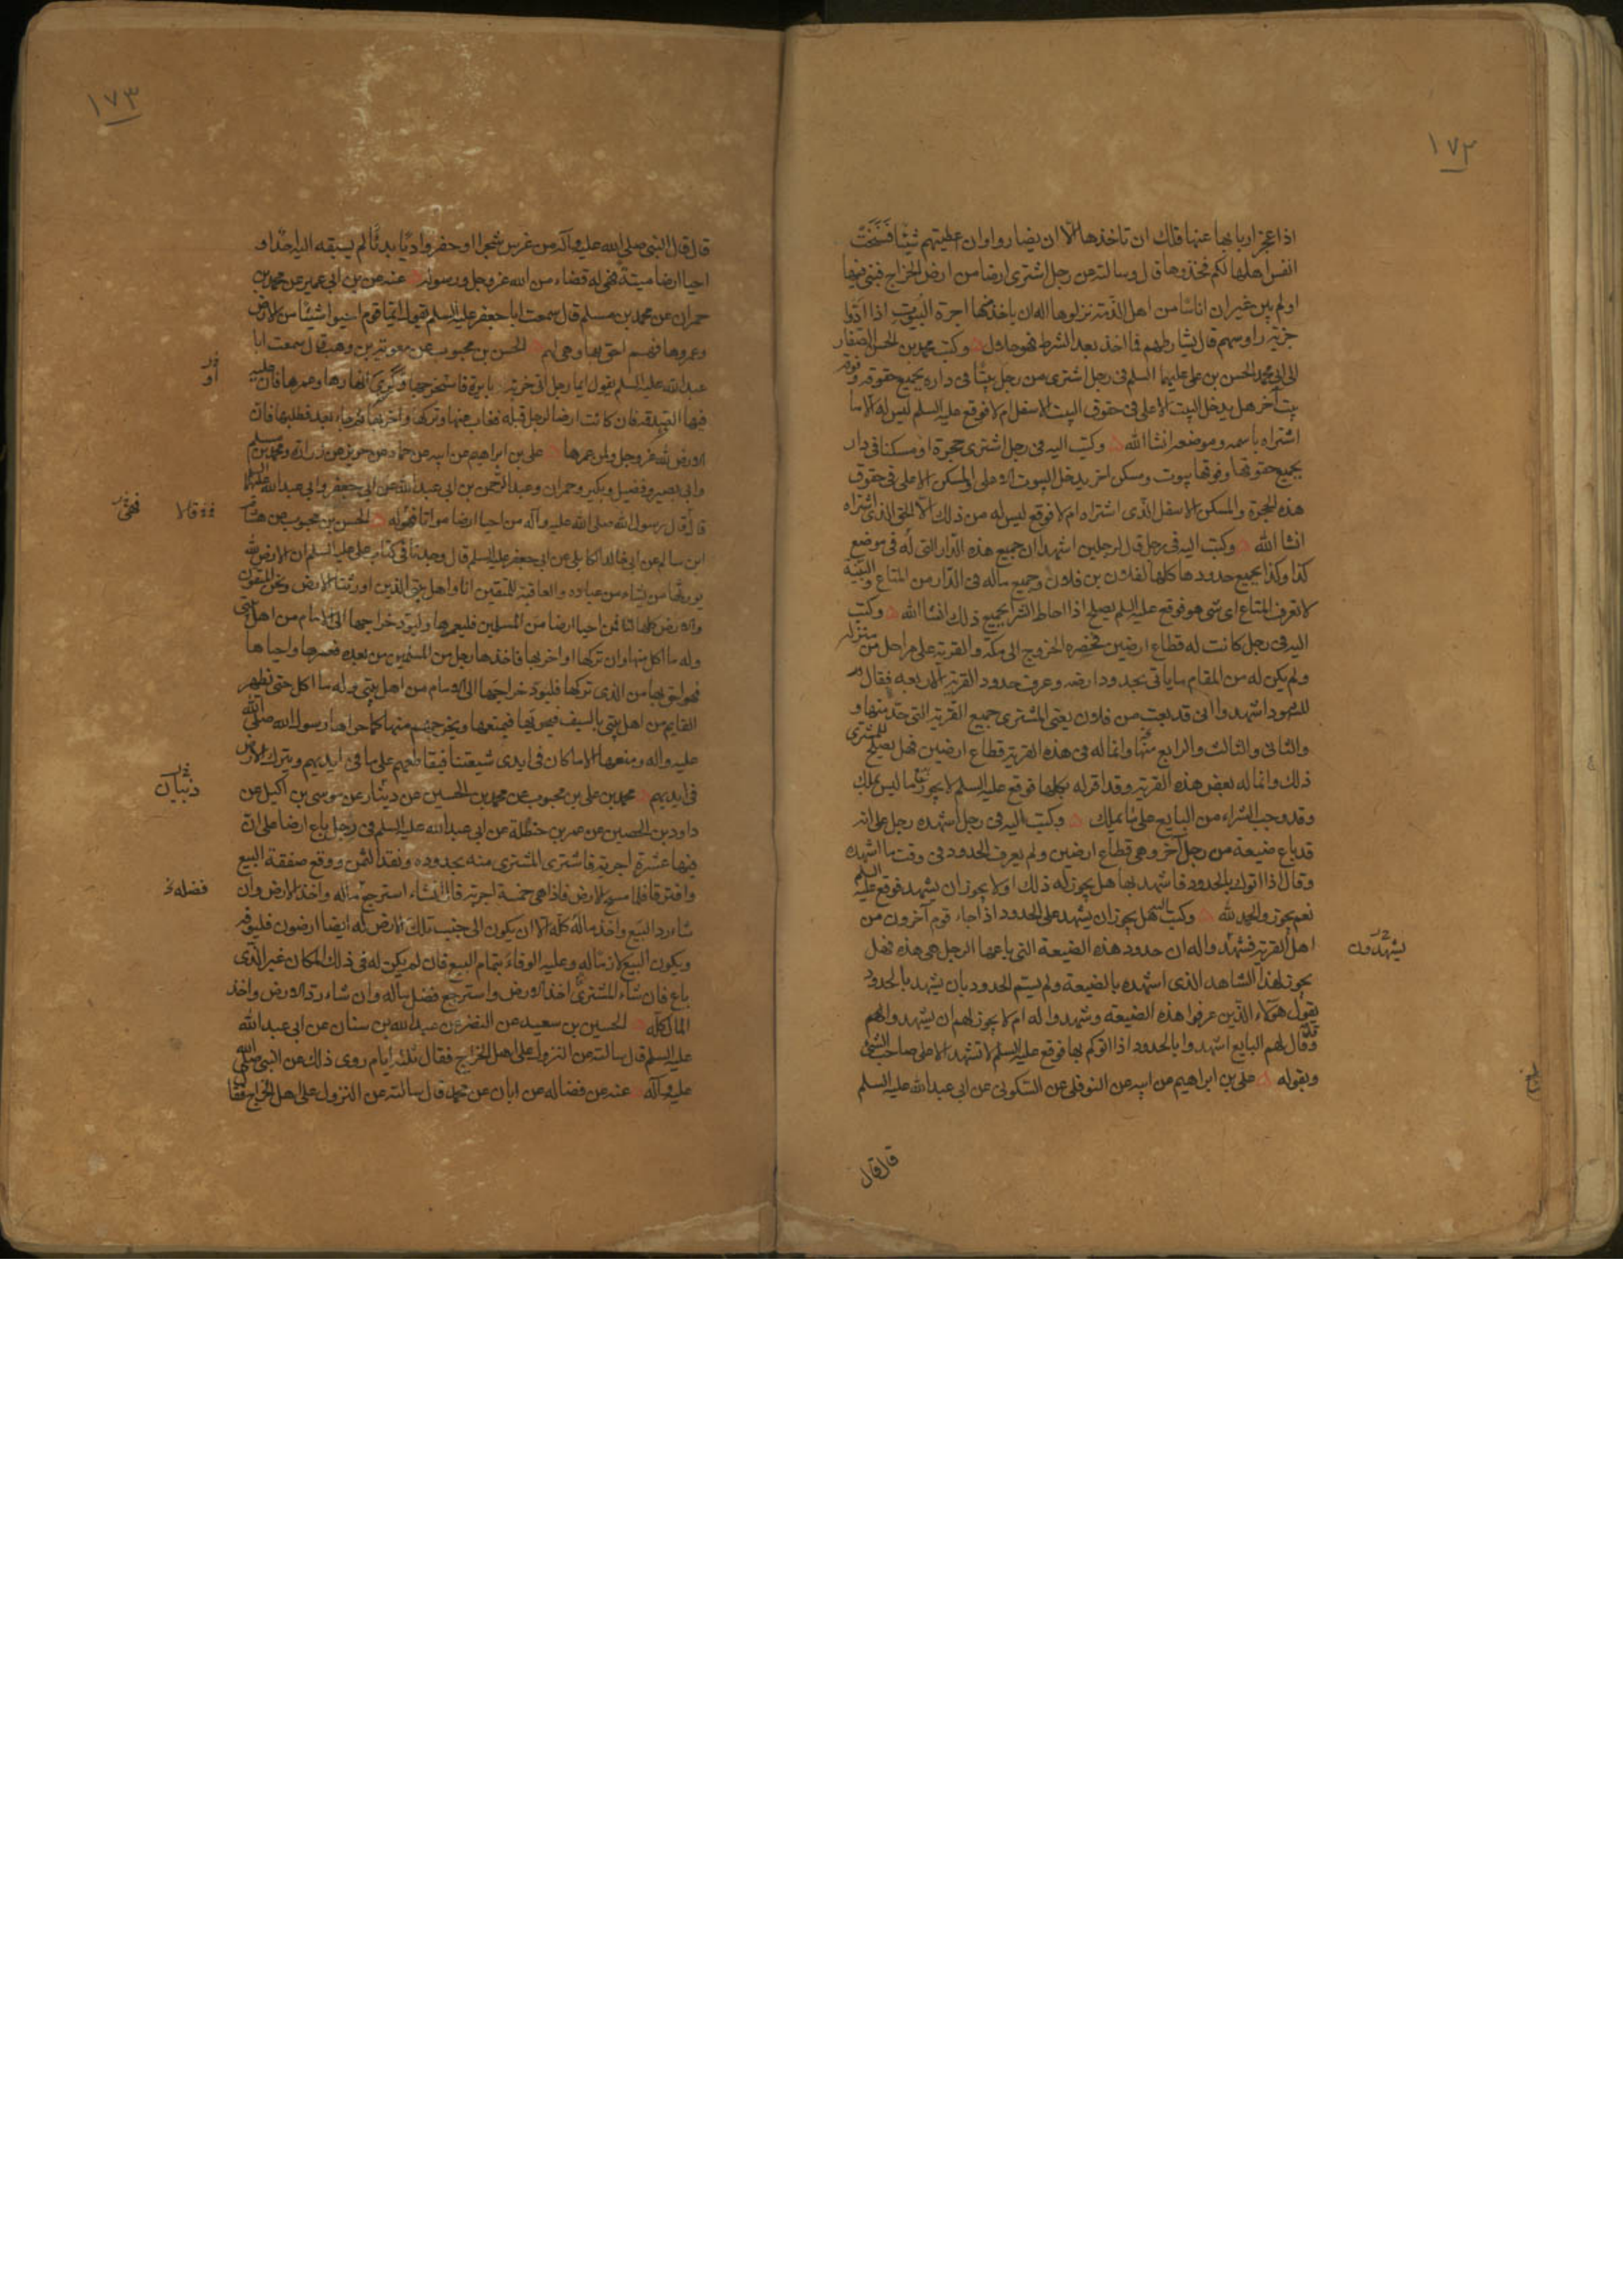 ١٧٢
اذا عجز اربابها عنها قلك ان تاخذها الا ان يضاروا وان اعطيتهم شيئا فسخت
انفس اهلها لكم فخذوها قال وسالته عن رجل اشترى ارضا من ارض الخراج فبنى فيها
او لم يبن غير ان اناسا من اهل الذمة نزلوها اله ان ياخذ منها اجرة البيوت اذا ادوا
جزية راوسهم قال يشارطهم فما اخذ بعد الشرط فهو حلال وكتب محمد بن الحسن الصفار
الى ابى محمد الحسن بن على عليهما السلم فى رجل اشترى من رجل بيتا فى داره بجميع حقوقه وفوقه
بيت آخر هل يدخل البيت الاعلى فى حقوق البيت الاسفل ام لا فوقع عليه السلم ليس له الا ما
اشتراه باسمه وموضعه انشا الله وكتب اليه فى رجل اشترى حجرة او مسكنا فى دار
بجميع حقوقها وفوقها بيوت ومسكن اخر يدخل البيوت الاعلى والمسكن الاعلى فى حقوق
هذه الحجرة والمسكن الاسفل الذى اشتراه ام لا فوقع ليس له من ذلك الا الحق الذى اشتراه
انشا الله وكتب اليه فى رجل قال لرجلين اشهدا ان جميع هذه الدار التى له فى موضع
كذا وكذا بجميع حدودها كلها لفلان بن فلان وجميع ماله فى الدار من المتاع والبينة
لا تعرف المتاع اى شى هو فوقع عليه السلم يصلح اذا احاط الشرا بجميع ذلك انشا الله وكتب
اليه فى رجل كانت له قطاع ارضين فحضره الخروج الى مكة والقرية على مراحل من منزله
ولم يكن له من المقام ما ياتى بحدود ارضه وعرف حدود القرية الاربعه فقال
للشهود اشهدوا انى قد بعت من فلان يعنى المشترى جميع القرية التى حد منها و
والثانى والثالث والرابع منها وانما له فى هذه القرية قطاع ارضين فهل يصلح للمشترى
ذلك وانما له بعض هذه القرية وقد اقر له بكلها فوقع عليه السلم لا يجوز بيع ما ليس يملك
وقد وجب الشراء من البايع على ما يملك وكتب اليه فى رجل اشهده رجل على انه
قد باع ضيعة من رجل آخر وهى قطاع ارضين ولم يعرف الحدود فى وقت ما اشهده
وقال اذا اتوك بالحدود فاشهد بها هل يجوز له ذلك او لا يجوز ان يشهد فوقع عليه السلم
نعم يجوز والحمد لله وكتب اليه هل يجوز ان يشهد على الحدود اذا جاء قوم آخرون من
اهل القرية فشهدوا له ان حدود هذه الضيعة التى باعها الرجل هى هذه فهل
يشهدون
يجوز لهذا الشاهد الذى اشهده بالضيعة ولم يسم الحدود بان يشهد بالحدود
بقول هؤلاء الذين عرفوا هذه الضيعة وشهدوا له ام لا يجوز لهم ان يشهدوا لهم
وقد قال لهم البايع اشهدوا بالحدود اذا اتوكم بها فوقع عليه السلم لا تشهد الا على صاحب الشى
وبقوله على بن ابراهيم عن ابيه عن النوفلى عن السكونى عن ابى عبد الله عليه السلم
قال قال
١٧٣
قال قال النبى صلى الله عليه وآله من غرس شجرا او حفر واديا بديا لم يسبقه اليه احد او
احيا ارضا ميتة فهى له قضاء من الله عز وجل ورسوله عنه عن بن ابى عمير عن محمد بن
حمران عن محمد بن مسلم قال سمعت ابا جعفر عليه السلم يقول ايما قوم احيوا شيئا من الارض
وعمروها فهم احق بها وهى لهم الحسن بن محبوب عن معوية بن وهب قال سمعت ابا
عبد الله عليه السلم يقول ايما رجل اتى خربة بايرة فاستخرجها وكرى انهارها وعمرها فان عليه
فيها الصدقة فان كانت ارضا لرجل قبله فغاب عنها وتركها واخربها ثم جاء بعد فطلبها فان
الارض لله عز وجل ولمن عمرها على بن ابراهيم عن ابيه عن حماد عن حريز عن زرارة ومحمد بن مسلم
وابى بصير وفضيل وبكير وحمران وعبد الرحمن بن ابى عبد الله عن ابى جعفر وابى عبد الله عليهما
قال قال رسول الله صلى الله عليه وآله من احيا ارضا مواتا فهو له الحسن بن محبوب عن هشام
قالا
ابن سالم عن ابى خالد الكابلى عن ابى جعفر عليه السلم قال وجدنا فى كتاب على عليه السلم ان الارض لله
يورثها من يشاء من عباده والعاقبة للمتقين انا واهل بيتى الذين اورثنا الارض ونحن المتقون
والارض كلها لنا فمن احيا ارضا من المسلمين فليعمرها وليؤد خراجها الى الامام من اهل بيتى
وله ما اكل منها وان تركها او اخربها فاخذها رجل من المسلمين من بعده فعمرها واحياها
فهو احق بها من الذى تركها فليود خراجها الى الامام من اهل بيتى وله ما اكل حتى يظهر
القايم من اهل بيتى بالسيف فيحويها فيمنعها ويخرجهم منها كما حواها رسول الله صلى الله
عليه واله ومنعها الا ما كان فى ايدى شيعتنا فيقاطعهم على ما فى ايديهم ويترك الارض
فى ايديهم محمد بن على بن محبوب عن محمد بن الحسين عن دينار عن موسى بن اكيل عن
ذبيان
داود بن الحصين عن عمر بن حنظلة عن ابى عبد الله عليه السلم فى رجل باع ارضا على ان
فيها عشرة اجربة فاشترى المشترى منه بحدوده ونقد الثمن ووقع صفقة البيع
وافترقا فلما مسح الارض فاذا هى خمسة اجربة قال ان شاء استرجع ماله واخذ الارض وان
فضله خ
شاء رد البيع واخذ ماله كله الا ان يكون الى جنب تلك الارض له ايضا ارضون فليوفه
ويكون البيع لازما له وعليه الوفاء بتمام البيع فان لم يكن له فى ذلك المكان غير الذى
باع فان شاء المشترى اخذ الارض واسترجع فضل ماله وان شاء رد الارض واخذ
المال كله الحسين بن سعيد عن النضر عن عبد الله بن سنان عن ابى عبد الله
عليه السلم قال سالته عن النزول على اهل الخراج فقال ثلثه ايام روى ذلك عن النبى صلى الله
عليه وآله عنه عن فضاله عن ابان عن محمد قال سالته عن النزول على اهل الخراج فقال